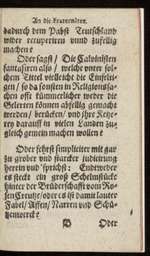 An die Fraterniteten.
dadurch dem Pabst Teutschland
wider recuperirn vnnd zufellig
machen?
Oder sagst / Die Calvinisten
fantasiren also / welche vnter sol-
chem Tittel vielleicht die Einfelti-
gen / so da sonsten in Religionsfa-
chen offt kümmerlicher weder die
Gelerten können abfellig gemacht
werden / brücken / vnd jhre Ketze-
rey dadurch in vielen Landen zu-
gleich gemein machen wollen?
Oder fehrst simpliciter mit gar
zu grober vnd starcker judicirung
herein vnd sprichst: Entweder
es steckt ein groß Schelmstück
hinter der Brüderschafft vom Ro-
sen Creutze / oder es ist damit lauter
Fabel / Affen / Narren vnd Scha-
D Oder